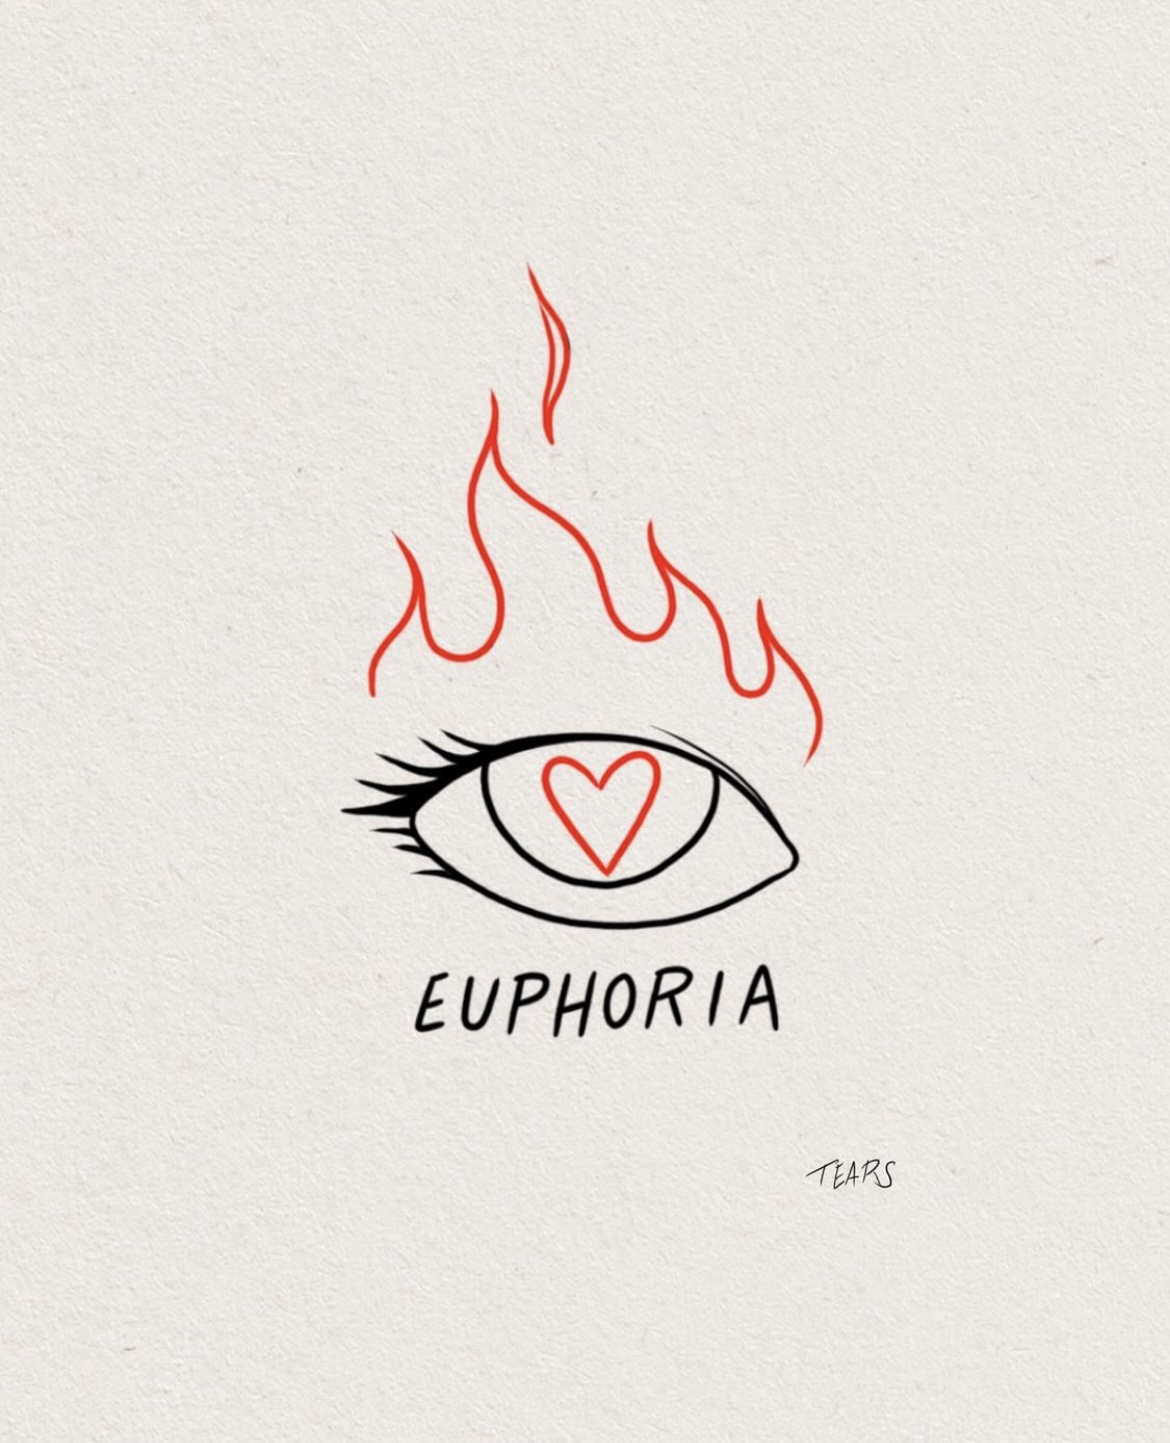 EUPHORIA
TEARS